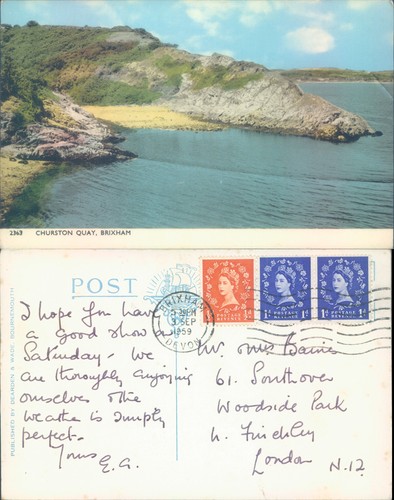 2363 CHURSTON QUAY, BRIXHAM
POST
PUBLISHED BY DEARDEN & WADE, BOURNEMOUTH
I hope you have
a good show on
Saturday - We
are thoroughly enjoying
ourselves & the
weather is simply
perfect.
Yours
E.G.
BRIXHAM
3 SEP
1959
DEVON
POSTAGE REVENUE
½d
POSTAGE REVENUE
1d
POSTAGE REVENUE
1d
Mr. & Mrs Baines
61. Southover
Woodside Park
N. Finchley
London N.12